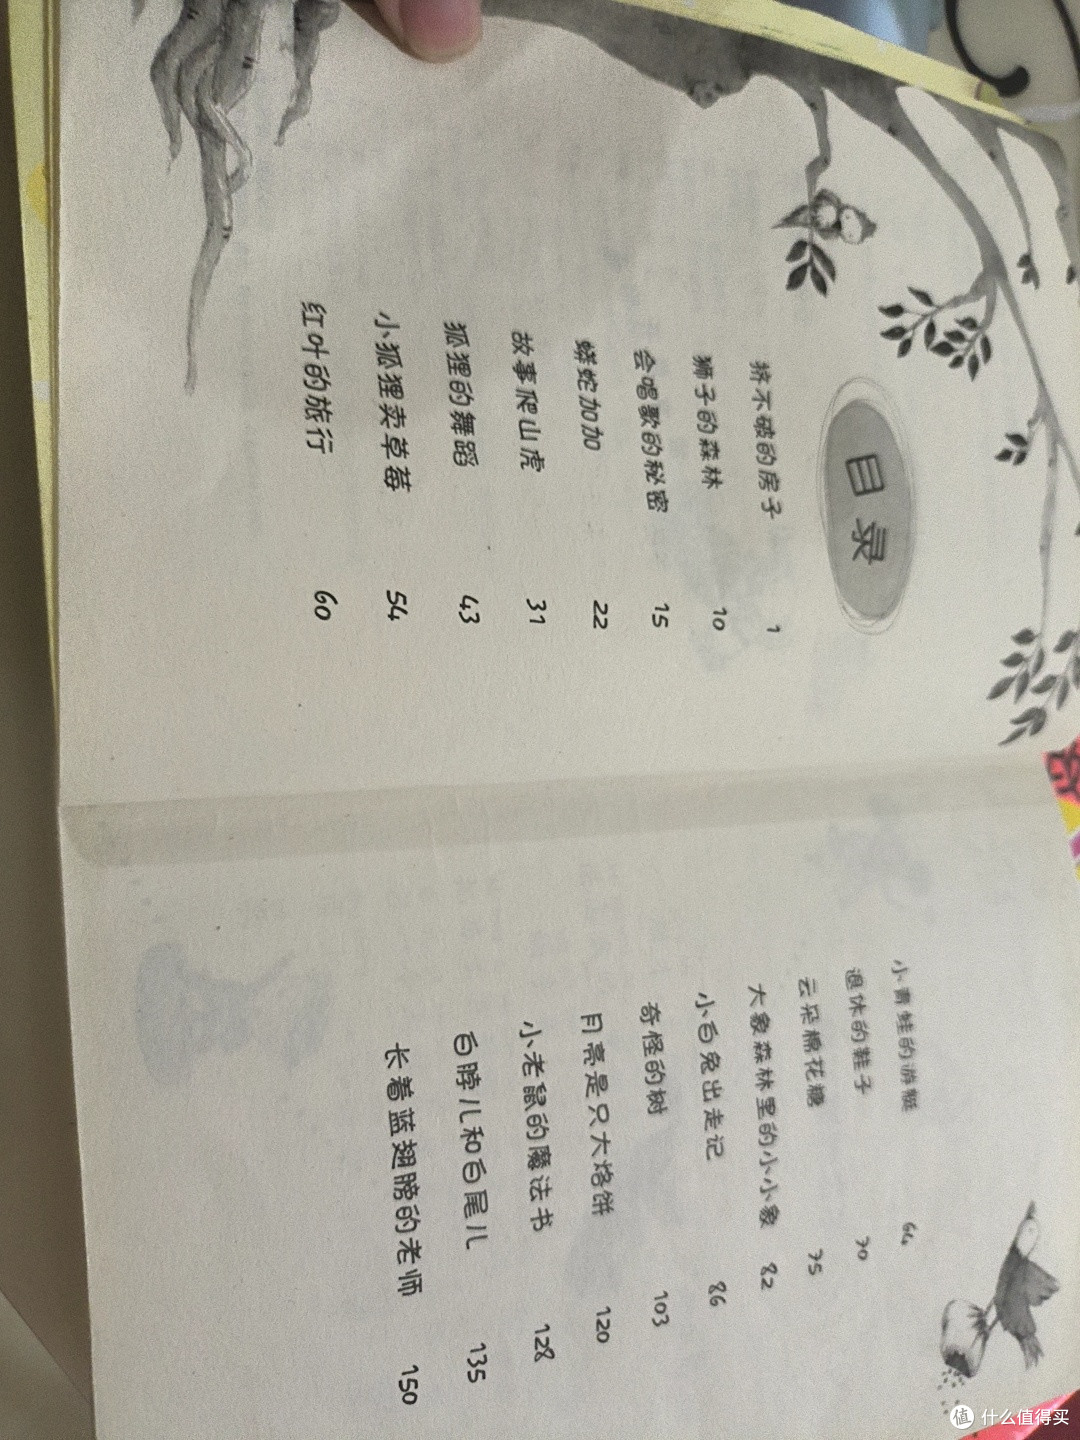 目录
挤不破的房子 1
狮子的森林 10
会唱歌的秘密 15
蟒蛇加加 22
故事爬山虎 31
狐狸的舞蹈 43
小狐狸卖草莓 54
红叶的旅行 60
小青蛙的游艇 64
退休的鞋子 70
云朵棉花糖 75
大象森林里的小小象 82
小白兔出走记 86
奇怪的树 103
月亮是只大烙饼 120
小老鼠的魔法书 128
白脖儿和白尾儿 135
长着蓝翅膀的老师 150
值 什么值得买